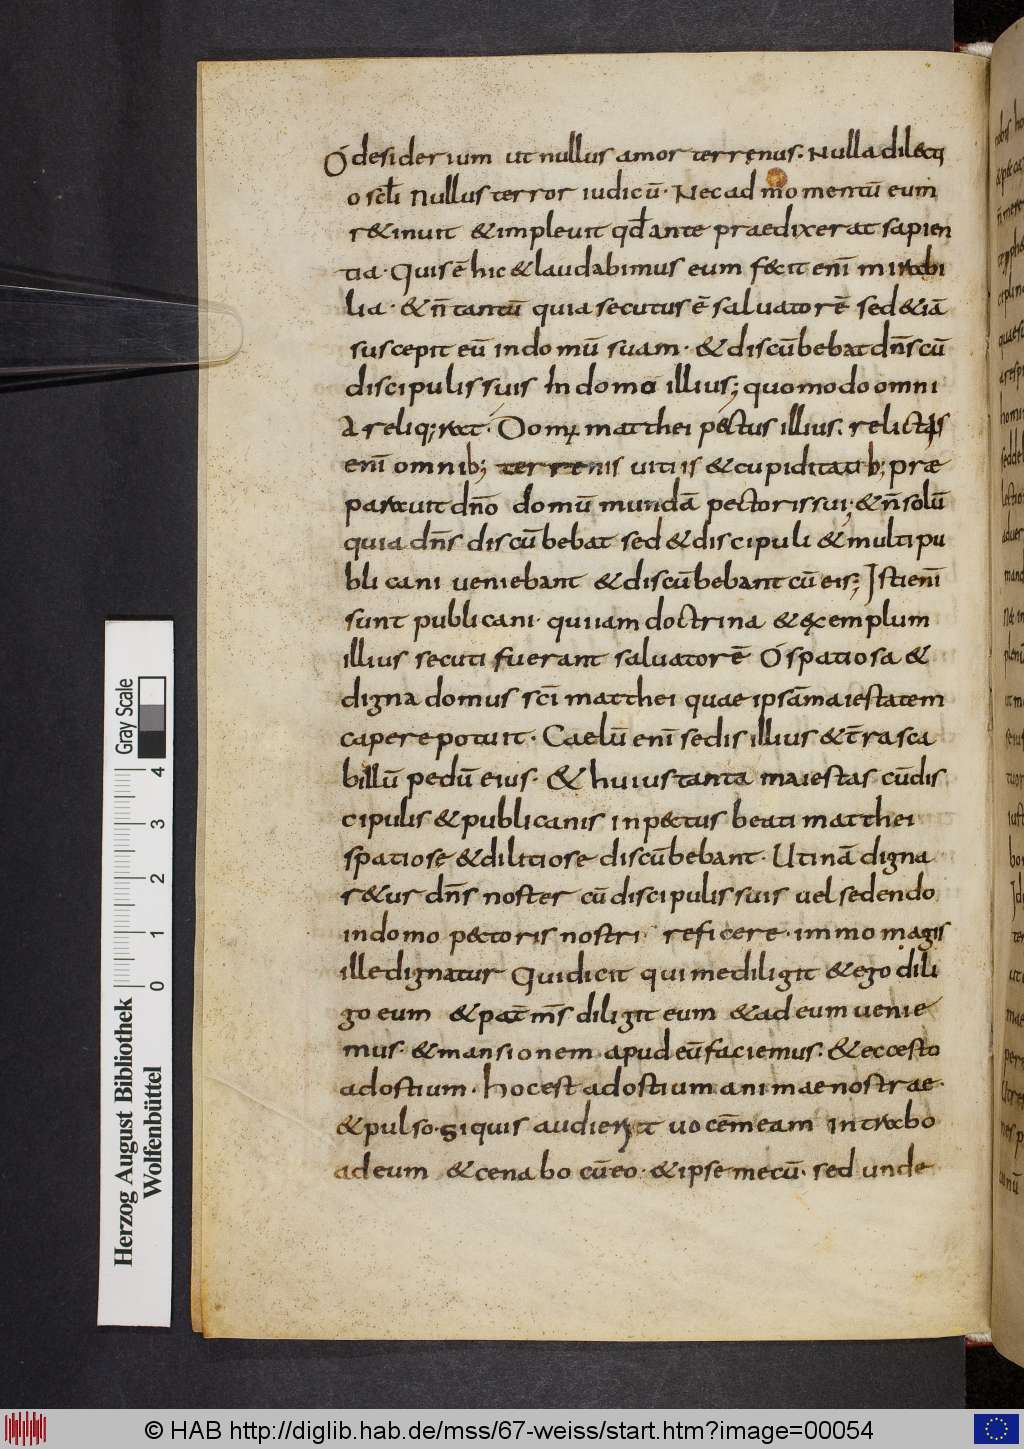 Ó desiderium ut nullus amor terrenus. Nulla dilecti
o scl̄i Nullus terror iudicū. Nec ad momentū eum
r&inuit &impleuit qd̄ ante praedixerat sapien
tia. Quis ē hic &laudabimus eum fecit enī mirabi
lia. &n̄ tantū quia secutus ē saluatorē sed &iā
suscepit eū in domū suam. &discūbebat dn̄s cū
discipulis suis In domo illius; quomodo omni
a reliq; rat. Dom; matthei pectus illius. relictis
enī omnib; terrenis uitiis &cupiditatib; præ
parauit dn̄o domū mundā pectoris sui; &n̄ solū
quia dn̄s discūbebat sed &discipuli &multi pu
blicani ueniebant &discūbebant cū eis; Isti enī
sunt publicani. qui iam doctrina &ęxemplum
illius secuti fuerant saluatorē Ó spatiosa &
digna domus scī matthei quae ipsā maiestatem
capere potuit. Caelū enī sedis illius &t̄ra sca
billū pedū eius. &huius tanta maiestas cū dis
cipulis &publicanis in pectus beati matthei
spatiose &dilitiose discūbebant. Utinā digna
r&ur dn̄s noster cū discipulis suis uel sedendo
in domo pectoris nostri reficere. immo magis
ille dignatur Qui dicit qui me diligit &ego dili
go eum &pat̄ m̄s diligit eum &ad eum uenie
mus. &mansionem apud eū faciemus. &ecce sto
ad ostium. hoc est ad ostium animae nostrae.
&pulso. si quis audierit uocē meam intrabo
ad eum &cenabo cū eo. &ipse mecū. sed unde
Herzog August Bibliothek
Wolfenbüttel
0 1 2 3 4
Gray Scale
© HAB http://diglib.hab.de/mss/67-weiss/start.htm?image=00054